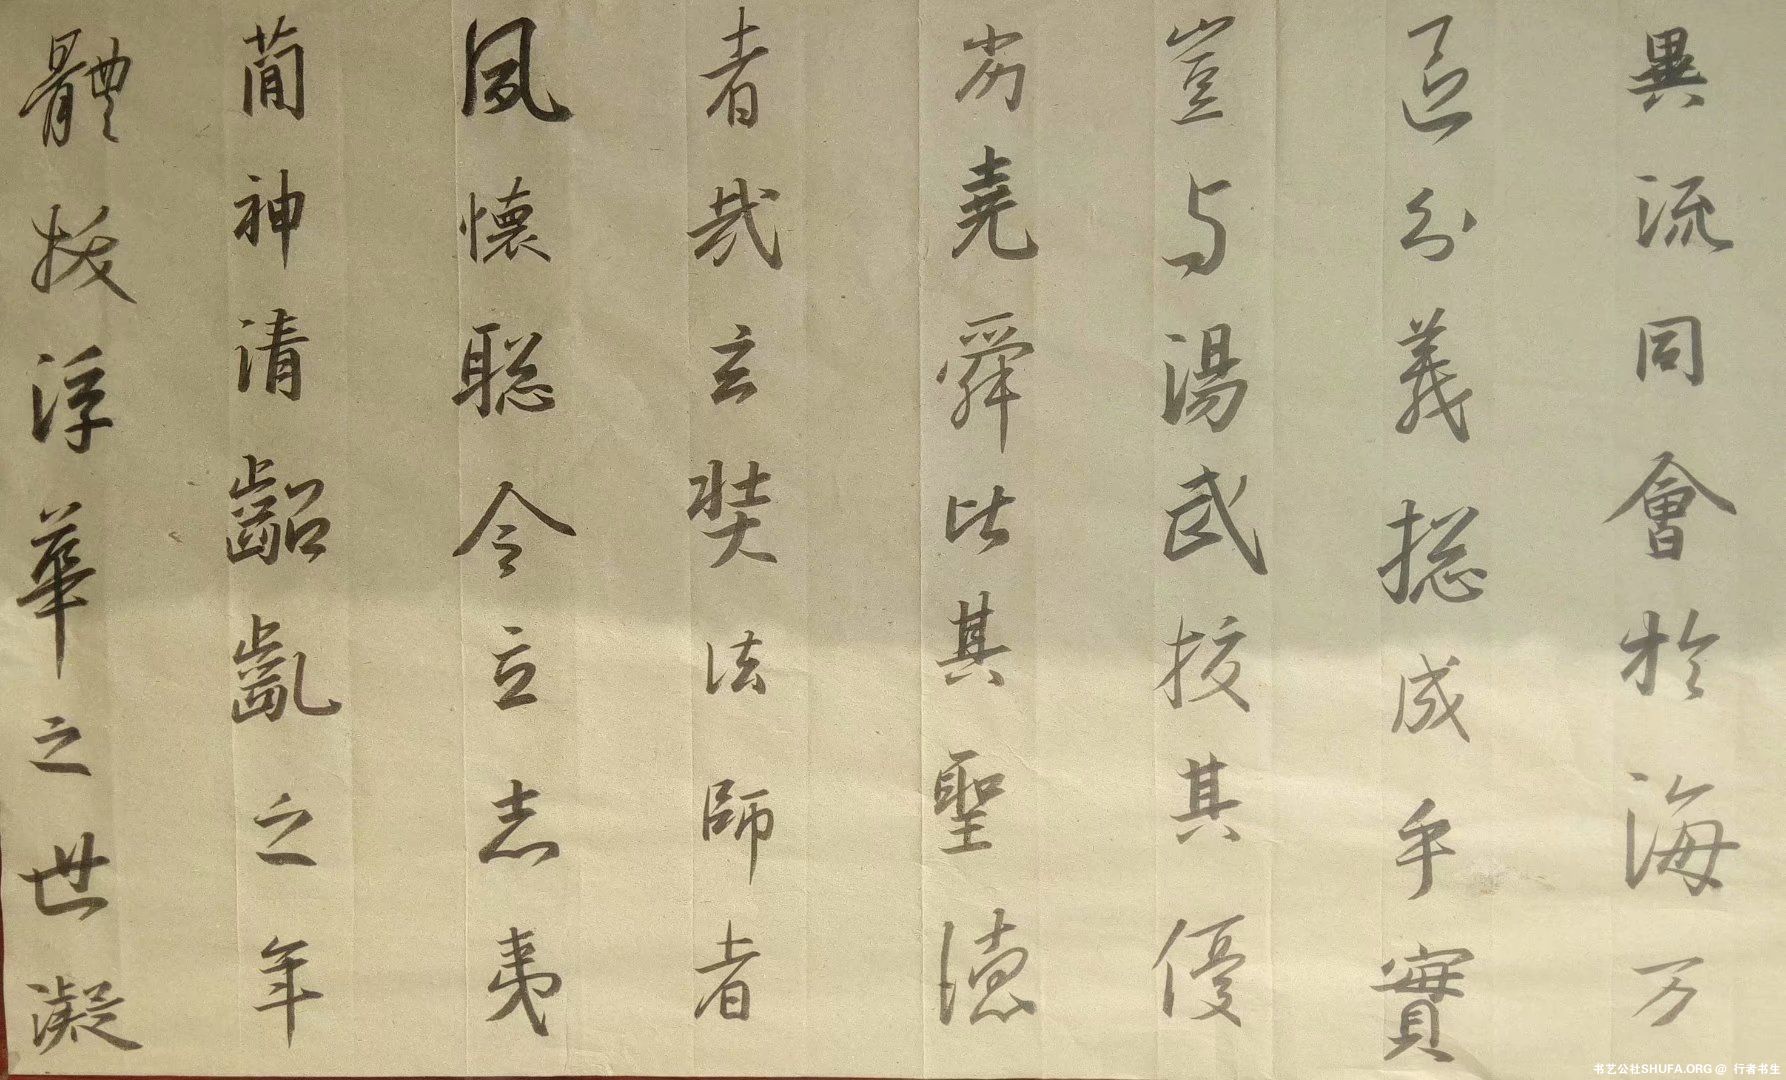 異流同會於海万
區分義揔成乎實
豈与湯武校其優
劣堯舜比其聖德
者哉玄奘法師者
夙懷聡令立志夷
蕳神清齠齓之年
體拔浮華之世凝
书艺公社SHUFA.ORG @ 行者书生